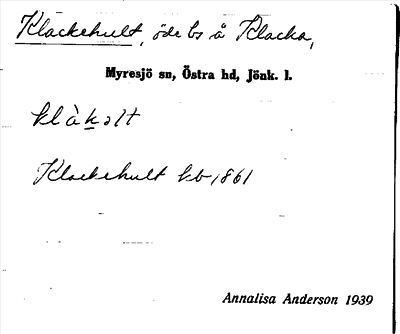 Kläckehult, öde bs å Klacka,
Myresjö sn, Östra hd, Jönk. l.
klàkəlt
Klackehult kb 1861
Annalisa Anderson 1939